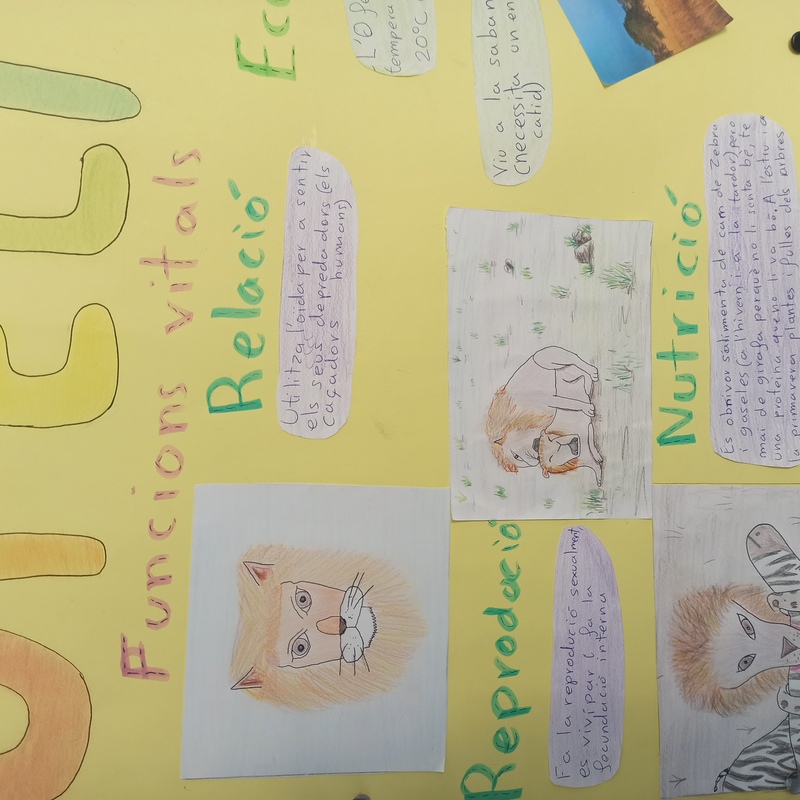 Funcions vitals
Relació
Utilitza l'oida per a sentir
els seus depredadors (els
caçadors humans)
Reprodució
Fa la reprodució sexualment
es vivípar i fa la
focundació interna
Nutrició
És obnivor s'alimenta de carn de Zebra
i gaseles (a l'hivern i a la tardor) pero
mai de girafa perquè no li senta bé, te
una proteïna que no li va bé. A l'estiu i a
la primavera plantes i fulles dels arbres
Eco
L'O
tempera
20°C
Viu a la saban
(necessita un en
calid)